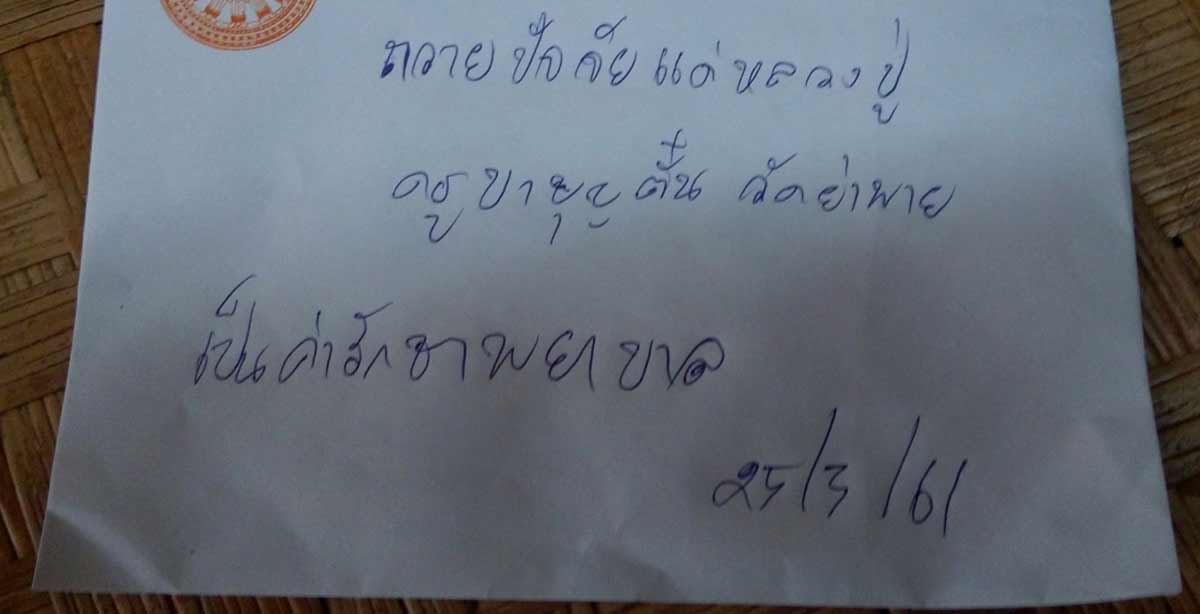 ถวายปัจจัยแด่หลวงปู่
ครูบา วัดย่าพาย
เป็นค่ารักษาพยาบาล
25/3/61